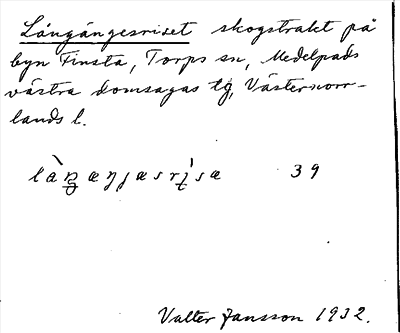 Långångesriset skogstrakt på
byn Finsta, Torps sn, Medelpads
västra domsagas tg, Västernorr-
lands l.
39
Valter Jansson 1932.